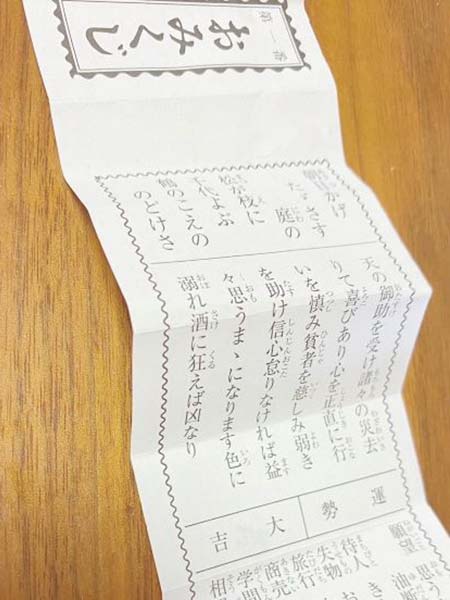 第一番
おみくじ
朝日かげ
たゞさす 庭の
松が枝に
千代よぶ
鶴のこえの
のどけさ
天の御助を受け諸々の災去
りて喜びあり心を正直に行
いを慎み貧者を慈しみ弱き
を助け信心怠りなければ益
々思うまゝになります色に
溺れ酒に狂えば凶なり
運勢
大吉
願望 思う
油断
待人
失物
旅行
商売
学問
相